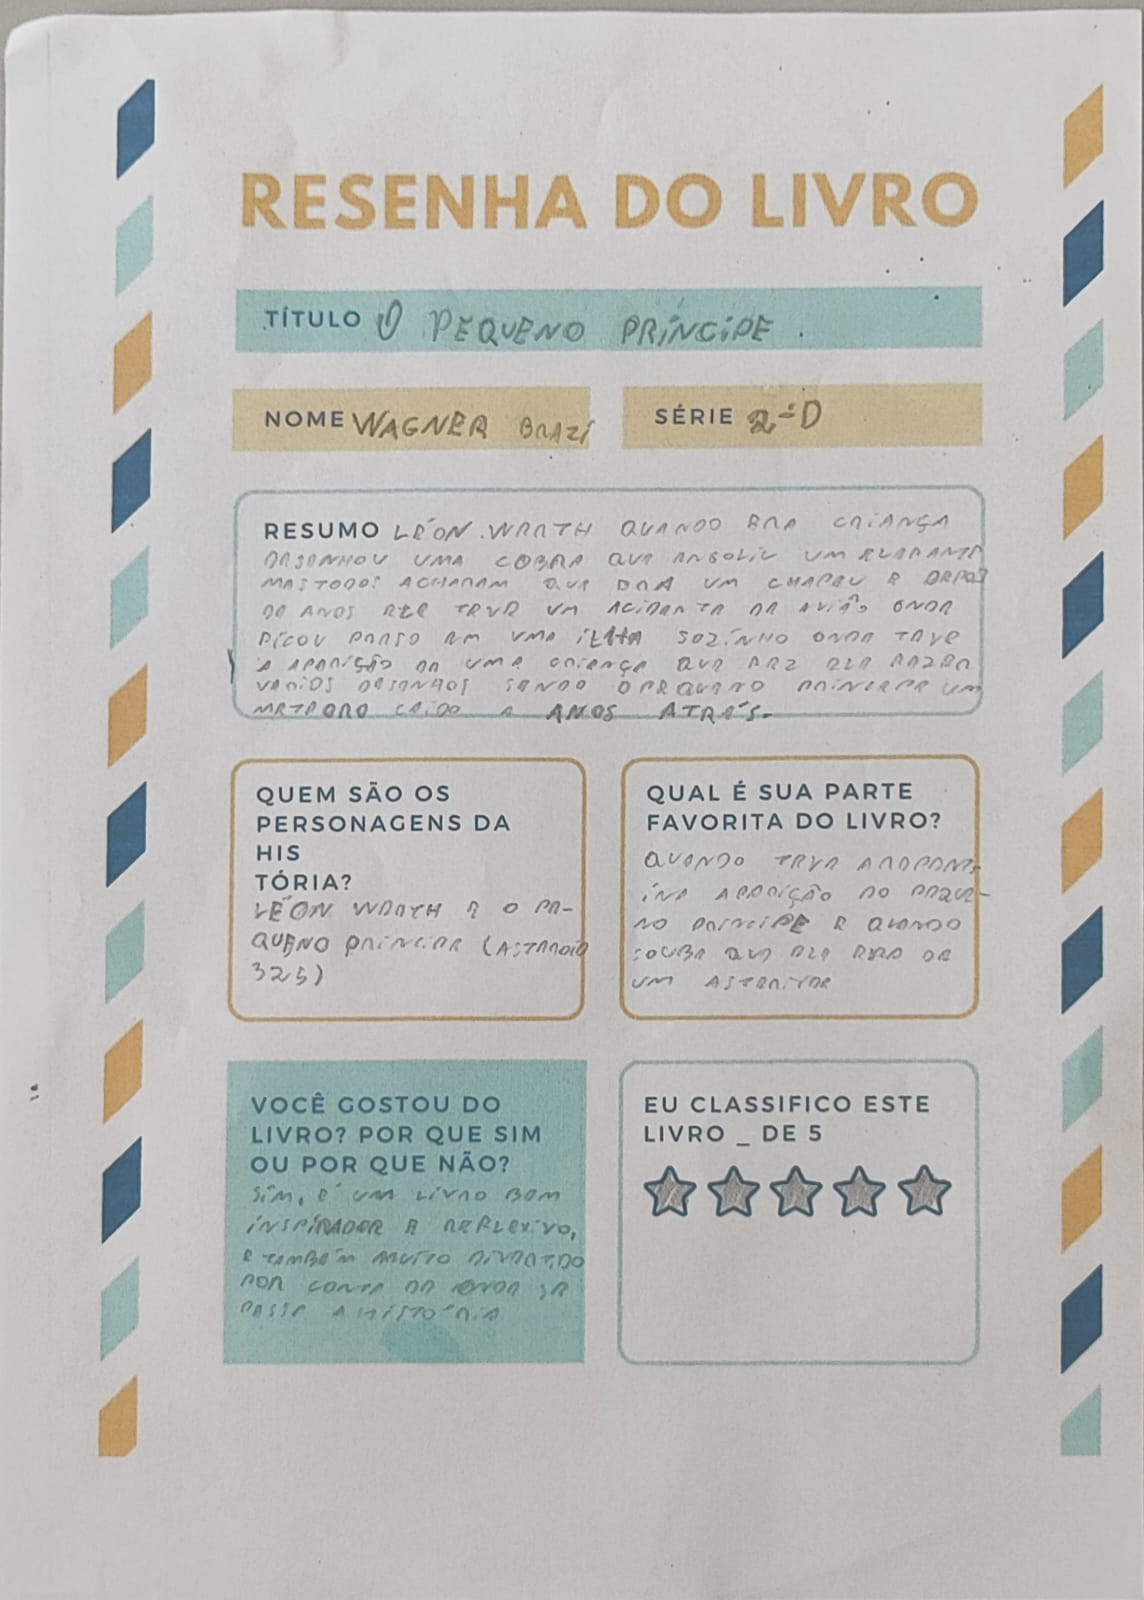 RESENHA DO LIVRO
TÍTULO O PEQUENO PRÍNCIPE .
NOME WAGNER BRAZI
SÉRIE 2-D
RESUMO LÉON WRATH QUANDO ERA CRIANÇA
DESENHOU UMA COBRA QUE ENGOLIU UM ELEFANTE
MAS TODOS ACHARAM QUE ERA UM CHAPEU E DEPOIS
DE ANOS ELE TEVE UM ACIDENTE DE AVIÃO ONDE
FICOU PRESO EM UMA ILHA SOZINHO ONDE TEVE
A APARIÇÃO DE UMA CRIANÇA QUE FAZ ELE FAZER
VARIOS DESENHOS SENDO O PEQUENO PRINCIPE UM
METEORO CAIDO A ANOS ATRÁS.
QUEM SÃO OS
PERSONAGENS DA
HIS
TÓRIA?
LÉON WRATH E O PE-
QUENO PRINCIPE (ASTEROID
325)
QUAL É SUA PARTE
FAVORITA DO LIVRO?
QUANDO TEVE A REPENT-
INA APARIÇÃO DO PEQUE-
NO PRINCIPE E QUANDO
SOUBE QUE ELE ERA DE
UM
VOCÊ GOSTOU DO
LIVRO? POR QUE SIM
OU POR QUE NÃO?
SIM, É UM LIVRO BEM
INSPIRADOR E REFLEXIVO,
E TAMBÉM MUITO DIVERTIDO
POR CONTA DE ONDE SE
PASSA A HISTÓRIA
EU CLASSIFICO ESTE
LIVRO _ DE 5